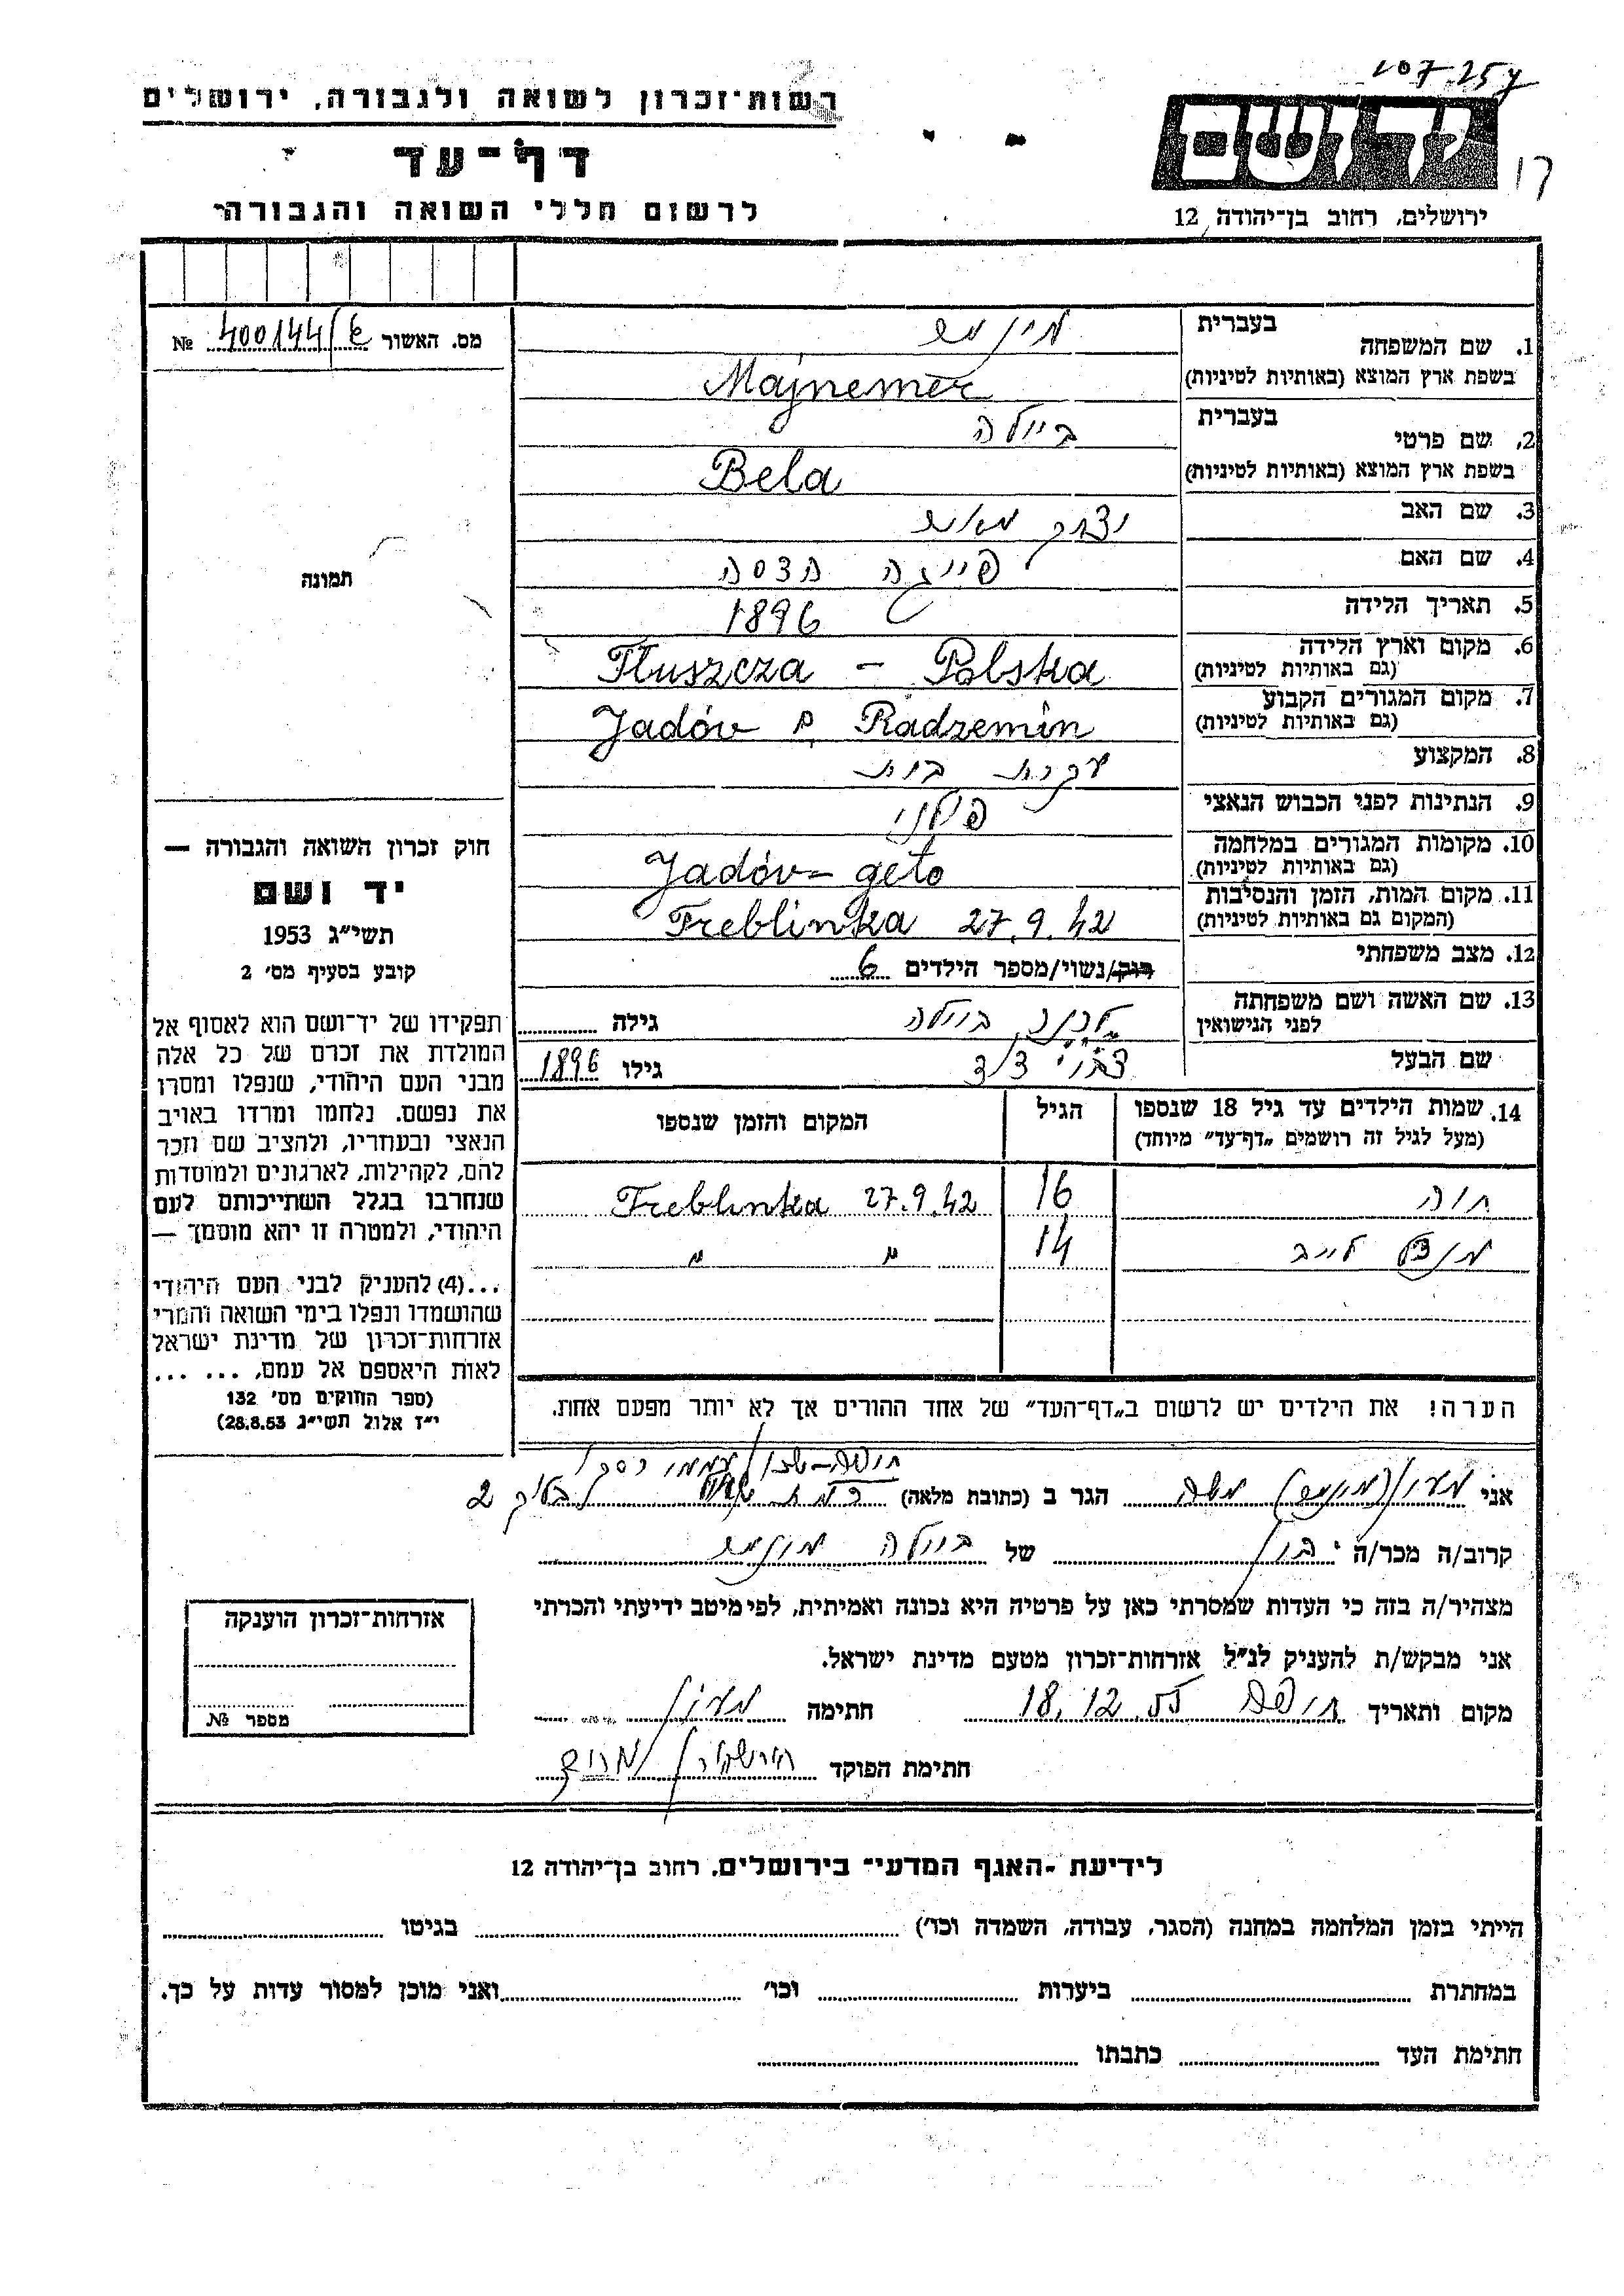 107-257
רשות־זכרון לשואה ולגבורה, ירושלים
דף־עד
לרשום חללי השואה והגבורה
יד ושם
17
ירושלים, רחוב בן־יהודה 12
מס. האשור 400144/ № 
1. שם המשפחה
בעברית
בשפת ארץ המוצא (באותיות לטיניות) Majnemer
2. שם פרטי
בעברית ביילה
בשפת ארץ המוצא (באותיות לטיניות) Bela
3. שם האב יצחק מאיר
4. שם האם פייגה הדסה
5. תאריך הלידה 1896
6. מקום וארץ הלידה
(גם באותיות לטיניות) Tłuszcza - Polska
7. מקום המגורים הקבוע
(גם באותיות לטיניות) Jadóv p. Radzemin
8. המקצוע עקרת בית
9. הנתינות לפני הכבוש הנאצי פולני
10. מקומות המגורים במלחמה
(גם באותיות לטיניות) Jadóv - geto
11. מקום המות, הזמן והנסיבות
(המקום גם באותיות לטיניות) Treblinka 27.9.42
12. מצב משפחתי רוק/נשוי/מספר הילדים 6
13. שם האשה ושם משפחתה
לפני הנישואין ביילה גילה
שם הבעל גילו 1896
14. שמות הילדים עד גיל 18 שנספו
(מעל לגיל זה רושמים „דף־עד" מיוחד)
הגיל
המקום והזמן שנספו
חוה 16 Treblinka 27.9.42
מנדל לייב 14 " "
הערה! את הילדים יש לרשום ב„דף־העד" של אחד ההורים אך לא יותר מפעם אחת.
תמונה
חוק זכרון השואה והגבורה —
יד ושם
תשי"ג 1953
קובע בסעיף מס׳ 2
תפקידו של יד־ושם הוא לאסוף אל
המולדת את זכרם של כל אלה
מבני העם היהודי, שנפלו ומסרו
את נפשם. נלחמו ומרדו באויב
הנאצי ובעוזריו, ולהציב שם וזכר
להם, לקהילות, לארגונים ולמוסדות
שנחרבו בגלל השתייכותם לעם
היהודי, ולמטרה זו יהא מוסמך —
...(4) להעניק לבני העם היהודי
שהושמדו ונפלו בימי השואה והמרי
אזרחות־זכרון של מדינת ישראל
לאות היאספם אל עמם, ... ...
(ספר החוקים מס׳ 132
י"ז אלול תשי"ג 28.8.53)
חיפה
אני משה הגר ב (כתובת מלאה) 2
קרוב/ה מכר/ה בן של ביילה
מצהיר/ה בזה כי העדות שמסרתי כאן על פרטיה היא נכונה ואמיתית, לפי מיטב ידיעתי והכרתי
אני מבקש/ת להעניק לנ"ל אזרחות־זכרון מטעם מדינת ישראל.
מקום ותאריך חיפה 18.12.55 חתימה
חתימת הפוקד
אזרחות־זכרון הוענקה
מספר №
לידיעת ־האגף המדעי־ בירושלים. רחוב בן־יהודה 12
הייתי בזמן המלחמה במחנה (הסגר, עבודה, השמדה וכו׳) בגיטו
במחתרת ביערות וכו׳ ואני מוכן למסור עדות על כך.
חתימת העד כתבתו